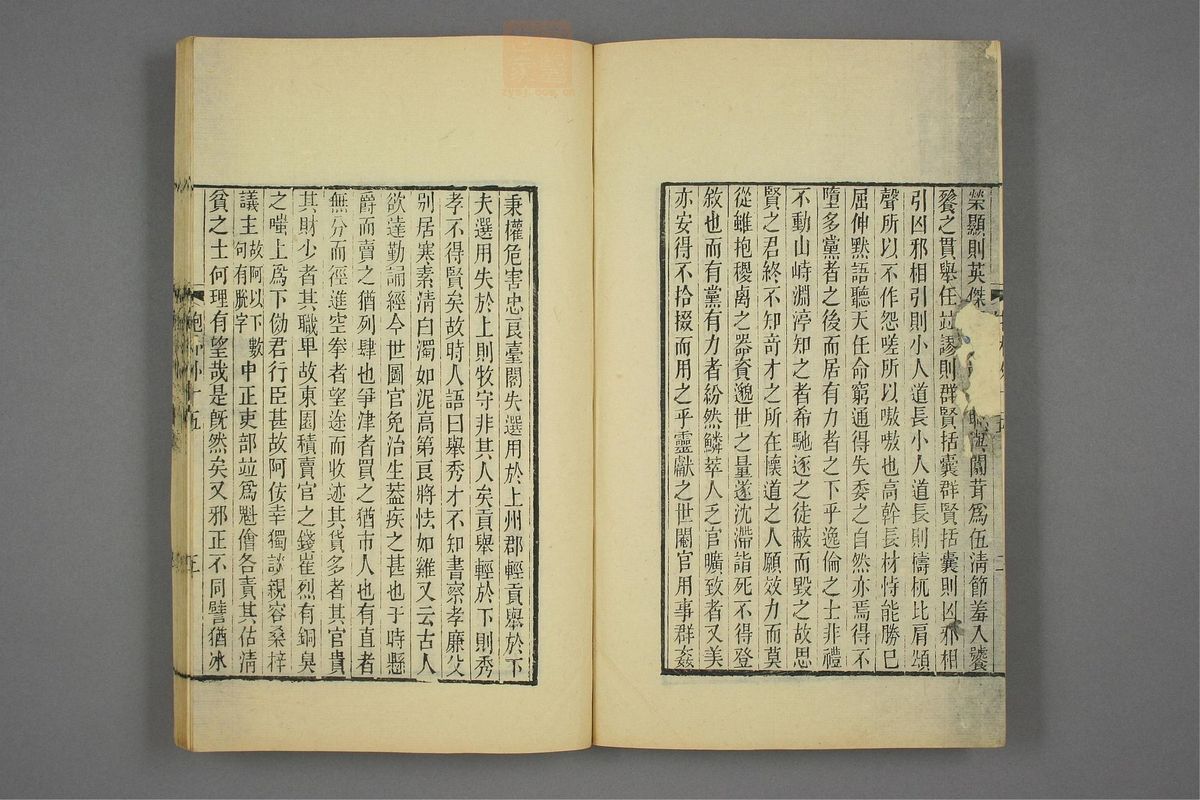 榮顯則英傑
恥與闒茸爲伍清節羞入饕
餮之貫舉任並謬則群賢括囊群賢括囊則凶邪相
引凶邪相引則小人道長小人道長則檮杌比肩頌
聲所以不作怨嗟所以嗷嗷也高幹長材恃能勝己
屈伸默語聽天任命窮通得失委之自然亦焉得不
墮多黨者之後而居有力者之下乎逸倫之士非禮
不動山峙淵渟知之者希馳逐之徒蔽而毀之故思
賢之君終不知奇才之所在懷道之人願效力而莫
從雖抱稷卨之器資邈世之量遂沈滯詣死不得登
敘也而有黨有力者紛然鱗萃人乏官曠致者又美
亦安得不拾掇而用之乎靈獻之世閹官用事群姦
秉權危害忠良臺閣失選用於上州郡輕貢舉於下
夫選用失於上則牧守非其人矣貢舉輕於下則秀
孝不得賢矣故時人語曰舉秀才不知書察孝廉父
別居寒素清白濁如泥高第良將怯如雞又云古人
欲達勤誦經今世圖官免治生蓋疾之甚也于時懸
爵而賣之猶列肆也爭津者買之猶市人也有直者
無分而徑進空拳者望途而收迹其貨多者其官貴
其財少者其職卑故東園積賣官之錢崔烈有銅臭
之嗤上爲下倣君行臣甚故阿佞幸獨談親容桑梓
議主故阿以下數何有脫字中正吏部並爲魁儈各責其估清
貧之士何理有望哉是既然矣又邪正不同譬猶冰